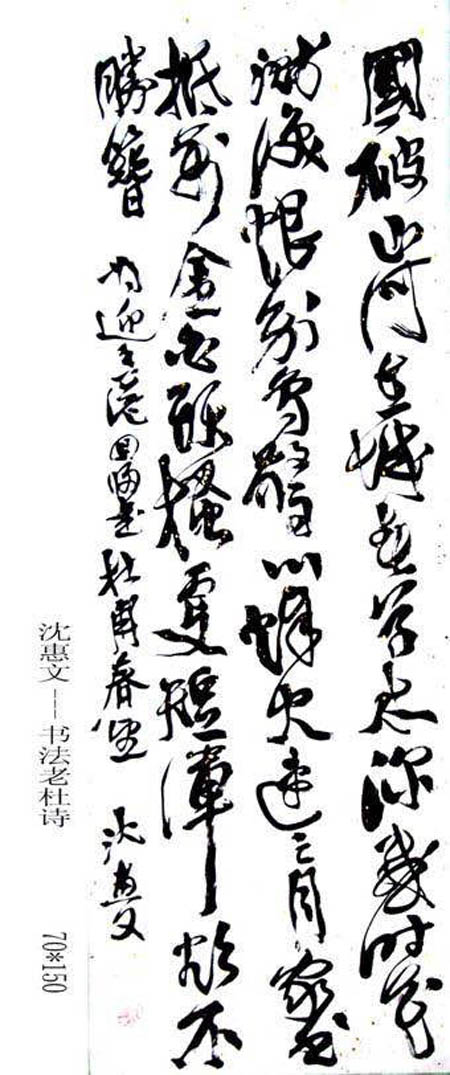 國破山河在城春草木深感時花
濺淚恨別鳥驚心烽火連三月家書
抵萬金白頭搔更短渾欲不
勝簪 為迎香港回歸書杜甫春望 沈惠文
沈惠文---书法老杜诗 70*150